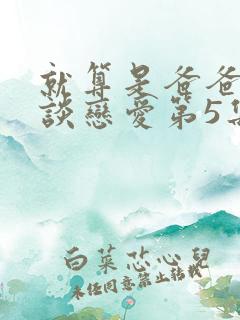 就算是爸爸
談戀愛第5集
白菜芯心兒
未经同意禁止转载